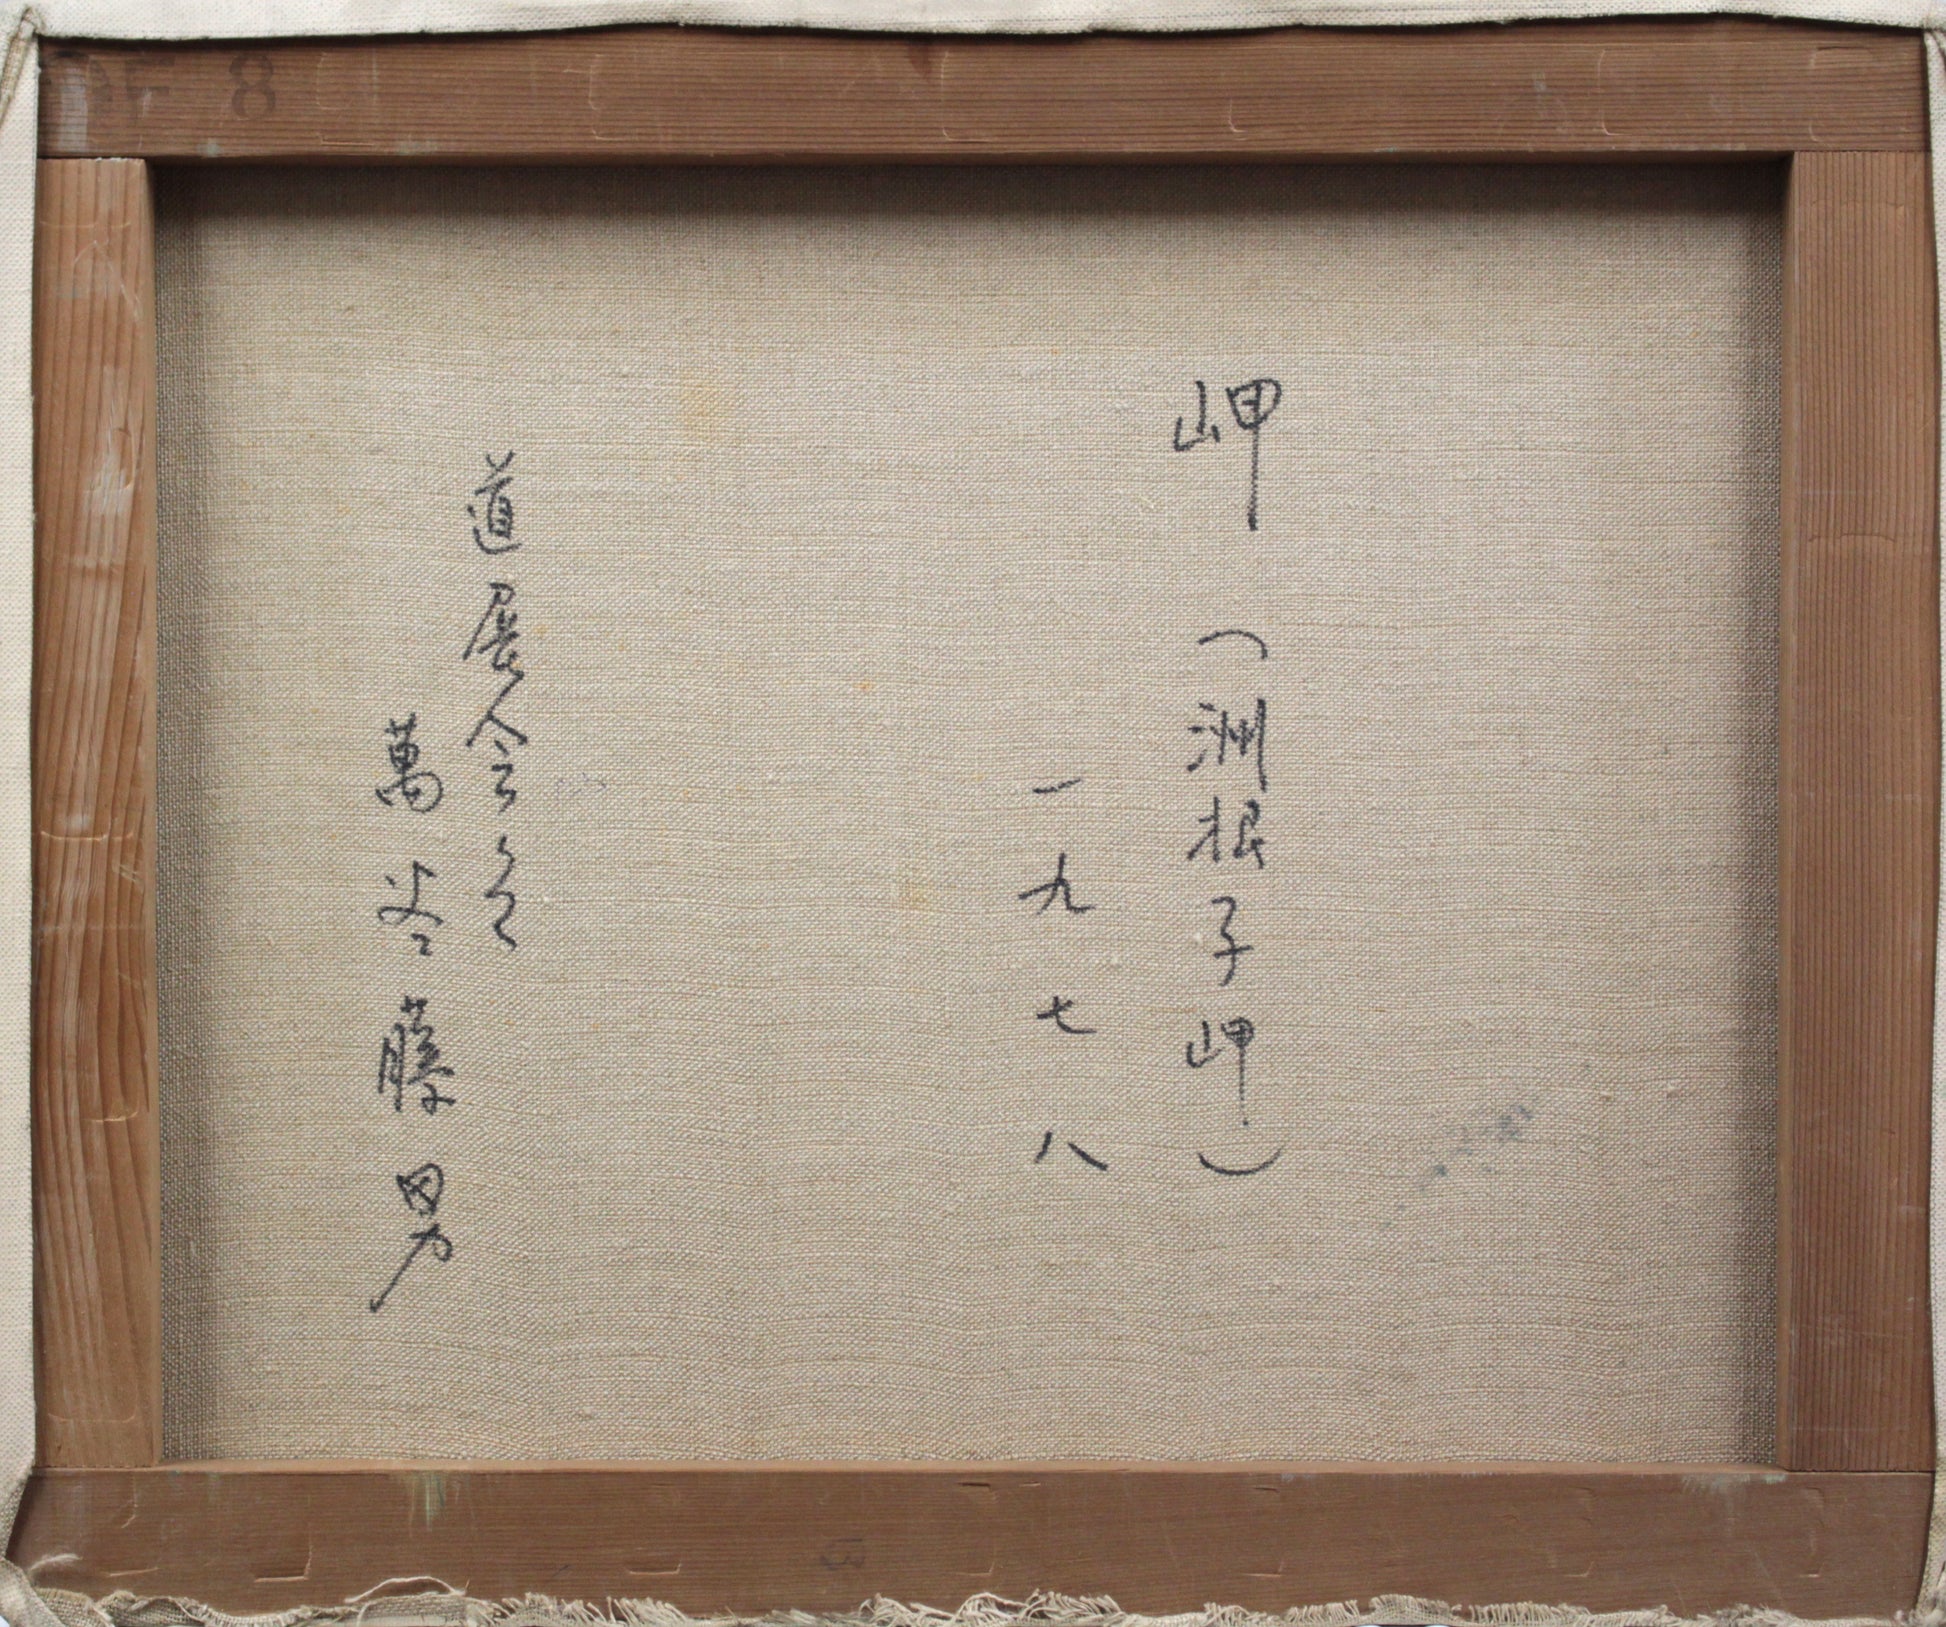 岬
(洲根子岬)
一九七八
道展会員
萬谷藤男
F 8